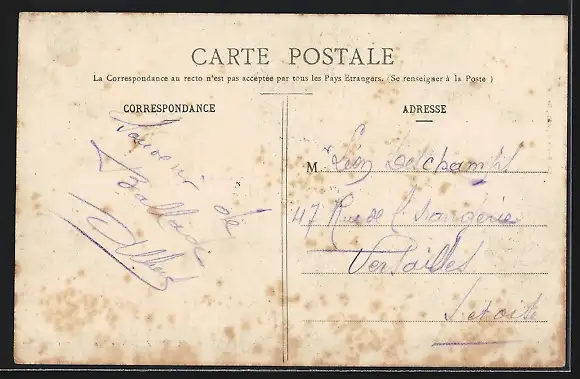 CARTE POSTALE
La Correspondance au recto n'est pas acceptée par tous les Pays Etrangers. (Se renseigner à la Poste)
CORRESPONDANCE
Souvenir de
Ballade
ADRESSE
M r Léon Deschamps
47 Rue de l'Orangerie
Versailles
S et oise